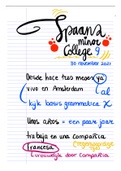 Spaans
minor
College 9
30 november 2020
Desde hace tres meses ya
vivo en Amsterdam al
kijk basis grammatica
Unos años = een paar jaar
trabaja en una compañia
francesa
vrouwelijk door compañia